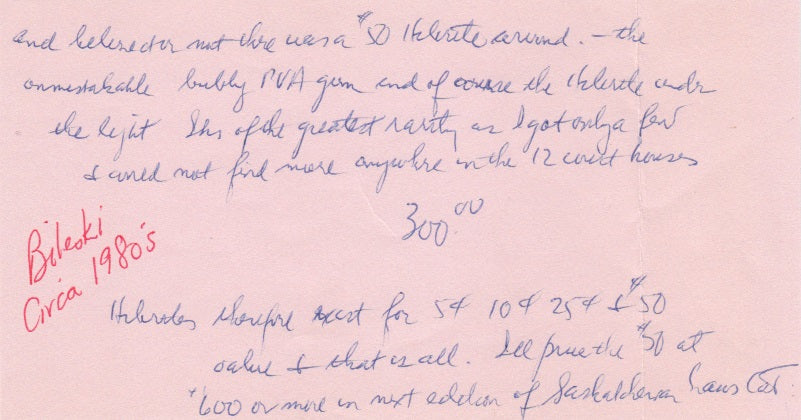 and believe it or not there was a $50 Hibrite around. – the
unmistakable bubbly PVA gum and of course the Hibrite under
the light This of the greatest rarity as I got only a few
& could not find more anywhere in the 12 court houses
300.00
Bileski
Circa 1980's
Hibrites therefore exist for 5¢ 10¢ 25¢ & $50
value & that is all. I'll price the $50 at
$600 or more in next edition of Saskatchewan Laws Cat.